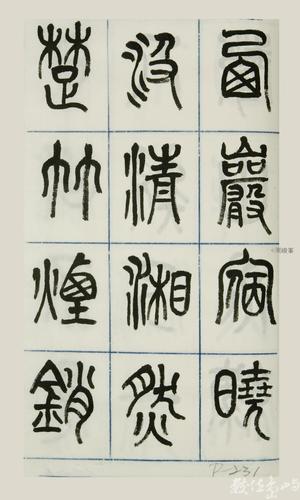 西巖宿曉
汲清湘然
楚竹煙銷
P-231